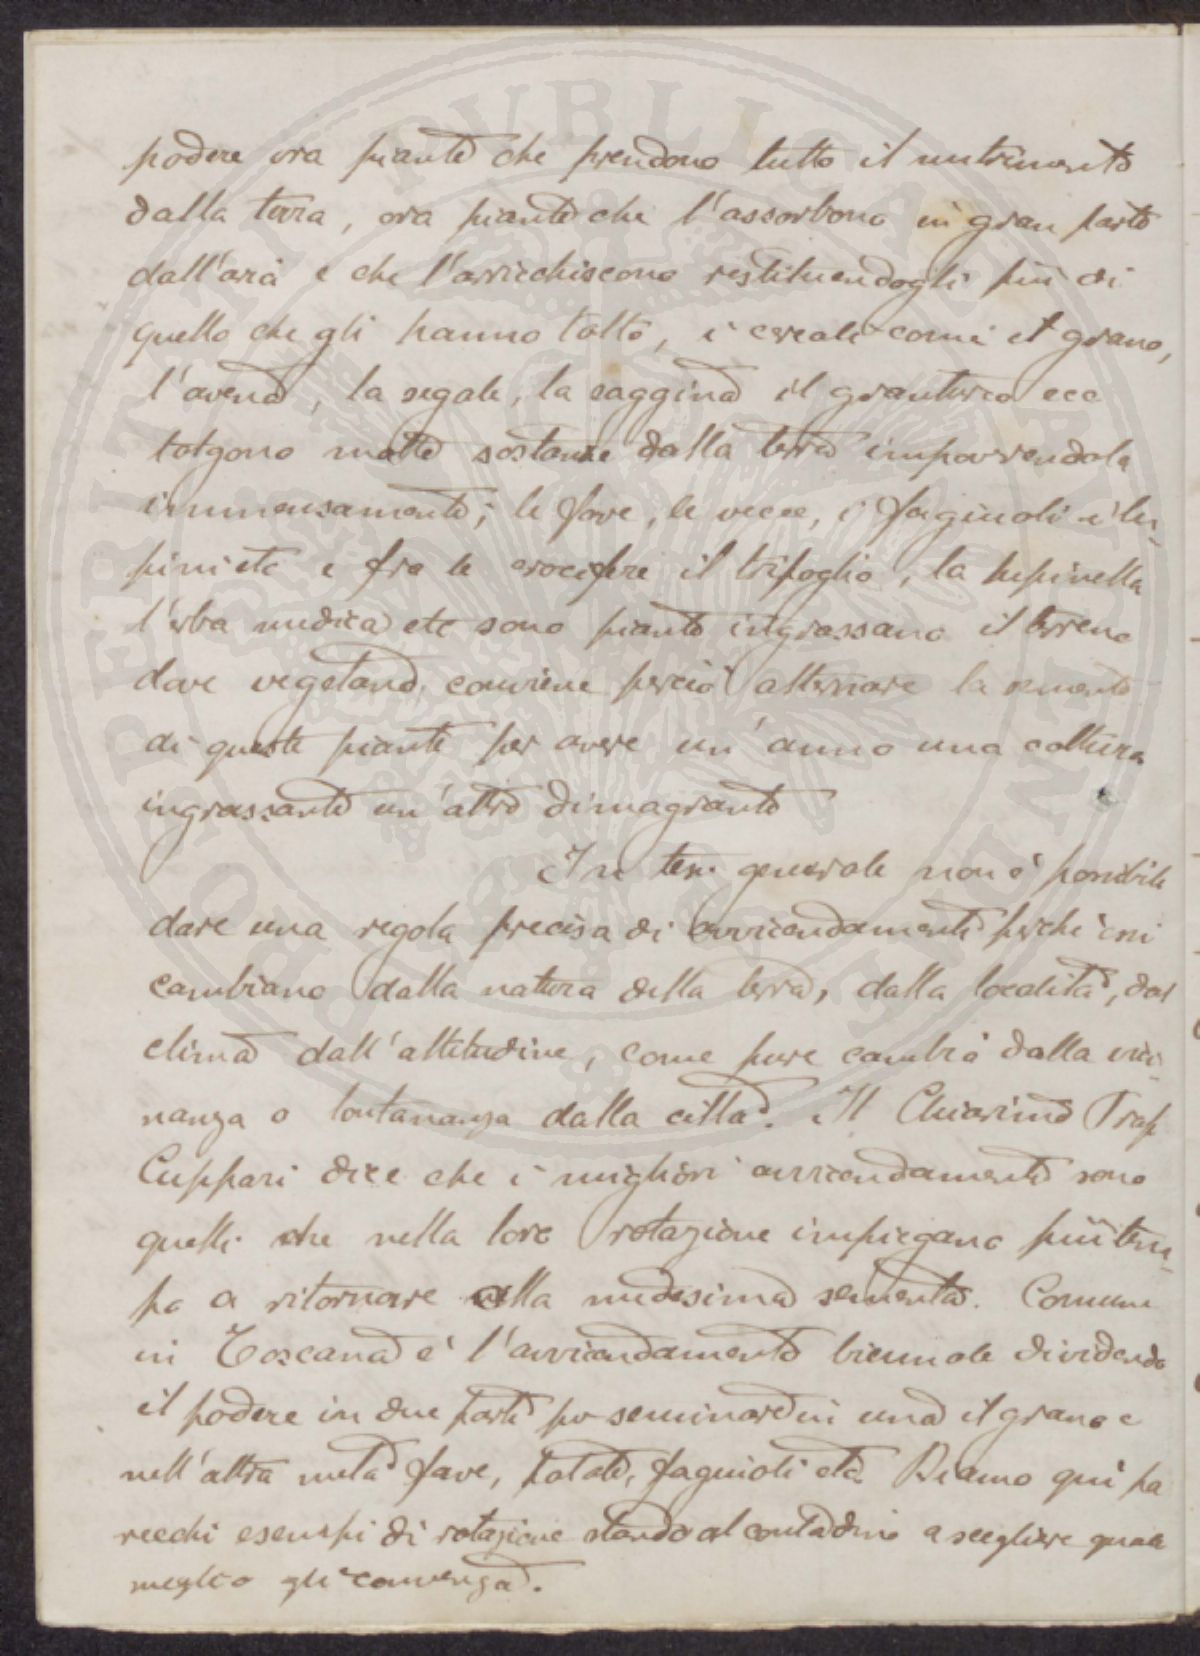 podere ora piante che prendono tutto il nutrimento
dalla terra, ora piante che l'assorbono in gran parte
dall'aria e che l'arricchiscono restituendogli più di
quello che gli hanno tolto, i cereali come il grano,
l'avena, la segale, la saggina il granturco ecc
tolgono molte sostanze dalla terra impoverendola
immensamente; le fave, le vecce, i fagiuoli i lu-
pini etc e fra le crocifere il trifoglio, la lupinella
l'erba medica etc sono piante ingrassano il terreno
dove vegetano, conviene perciò alternare la sementa
di queste piante per avere un'anno una coltura
ingrassante un'altro dimagrante
In tesi generale non è possibile
dare una regola precisa di avvicendamento perché essi
cambiano dalla natura della terra, dalla località, dal
clima dall'altitudine, come pure cambia dalla vici-
nanza o lontananza dalla città. Il Chiarimo Prof
Cuppari dice che i migliori avvicendamenti sono
quelli che nella loro rotazione impiegano più tem-
po a ritornare alla medesima sementa. Comune
in Toscana è l'avvicendamento biennale dividendo
il podere in due parti per seminare in una il grano e
nell'altra metà fave, patate, fagiuoli etc. Diamo qui pa
recchi esempi di rotazione stando al contadino a scegliere quale
meglio gli convenga.